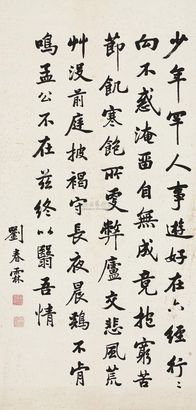 少年罕人事遊好在六經行〻
向不惑淹畱自無成竟抱窮苦
節飢寒飽所更弊廬交悲風荒
艸没前庭披褐守長夜晨鷄不肯
鳴孟公不在兹終以翳吾情
劉春霖